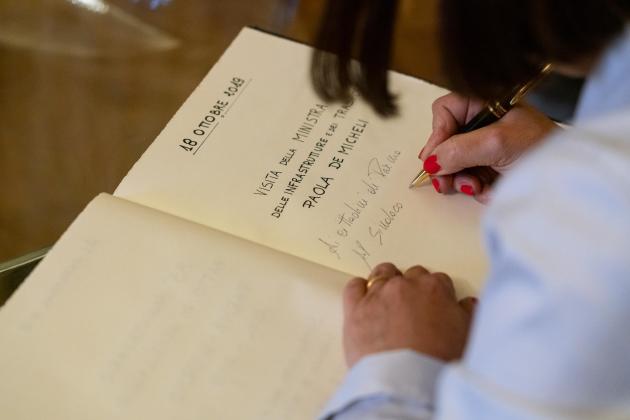 18 OTTOBRE 2019
VISITA DELLA MINISTRA
DELLE INFRASTRUTTURE E DEI
PAOLA DE MICHELI
Ai cittadini di Parma
Al Sindaco